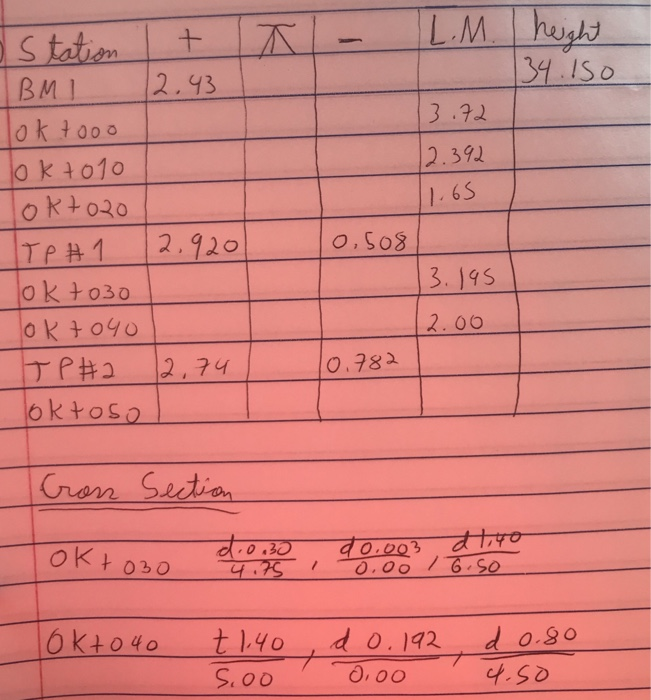 Station + ⊼ - L.M. height
BM1 2.43 34.150
0k+000 3.72
0k+010 2.392
0k+020 1.65
TP#1 2.920 0.508
0k+030 3.195
0k+040 2.00
TP#2 2.74 0.782
0k+050
Cross Section
0k+030 d.0.30/4.75, d0.003/0.00, d1.40/6.50
0k+040 t1.40/5.00, d 0.192/0.00, d 0.80/4.50